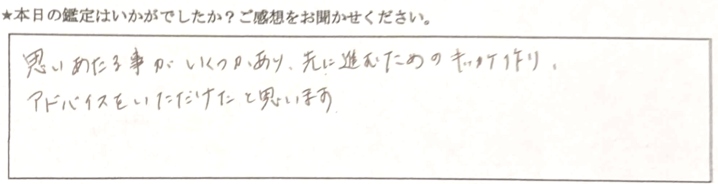 ★本日の鑑定はいかがでしたか？ご感想をお聞かせください。
思いあたる事がいくつかあり、先に進むためのキッカケ作り、
アドバイスをいただけたと思います